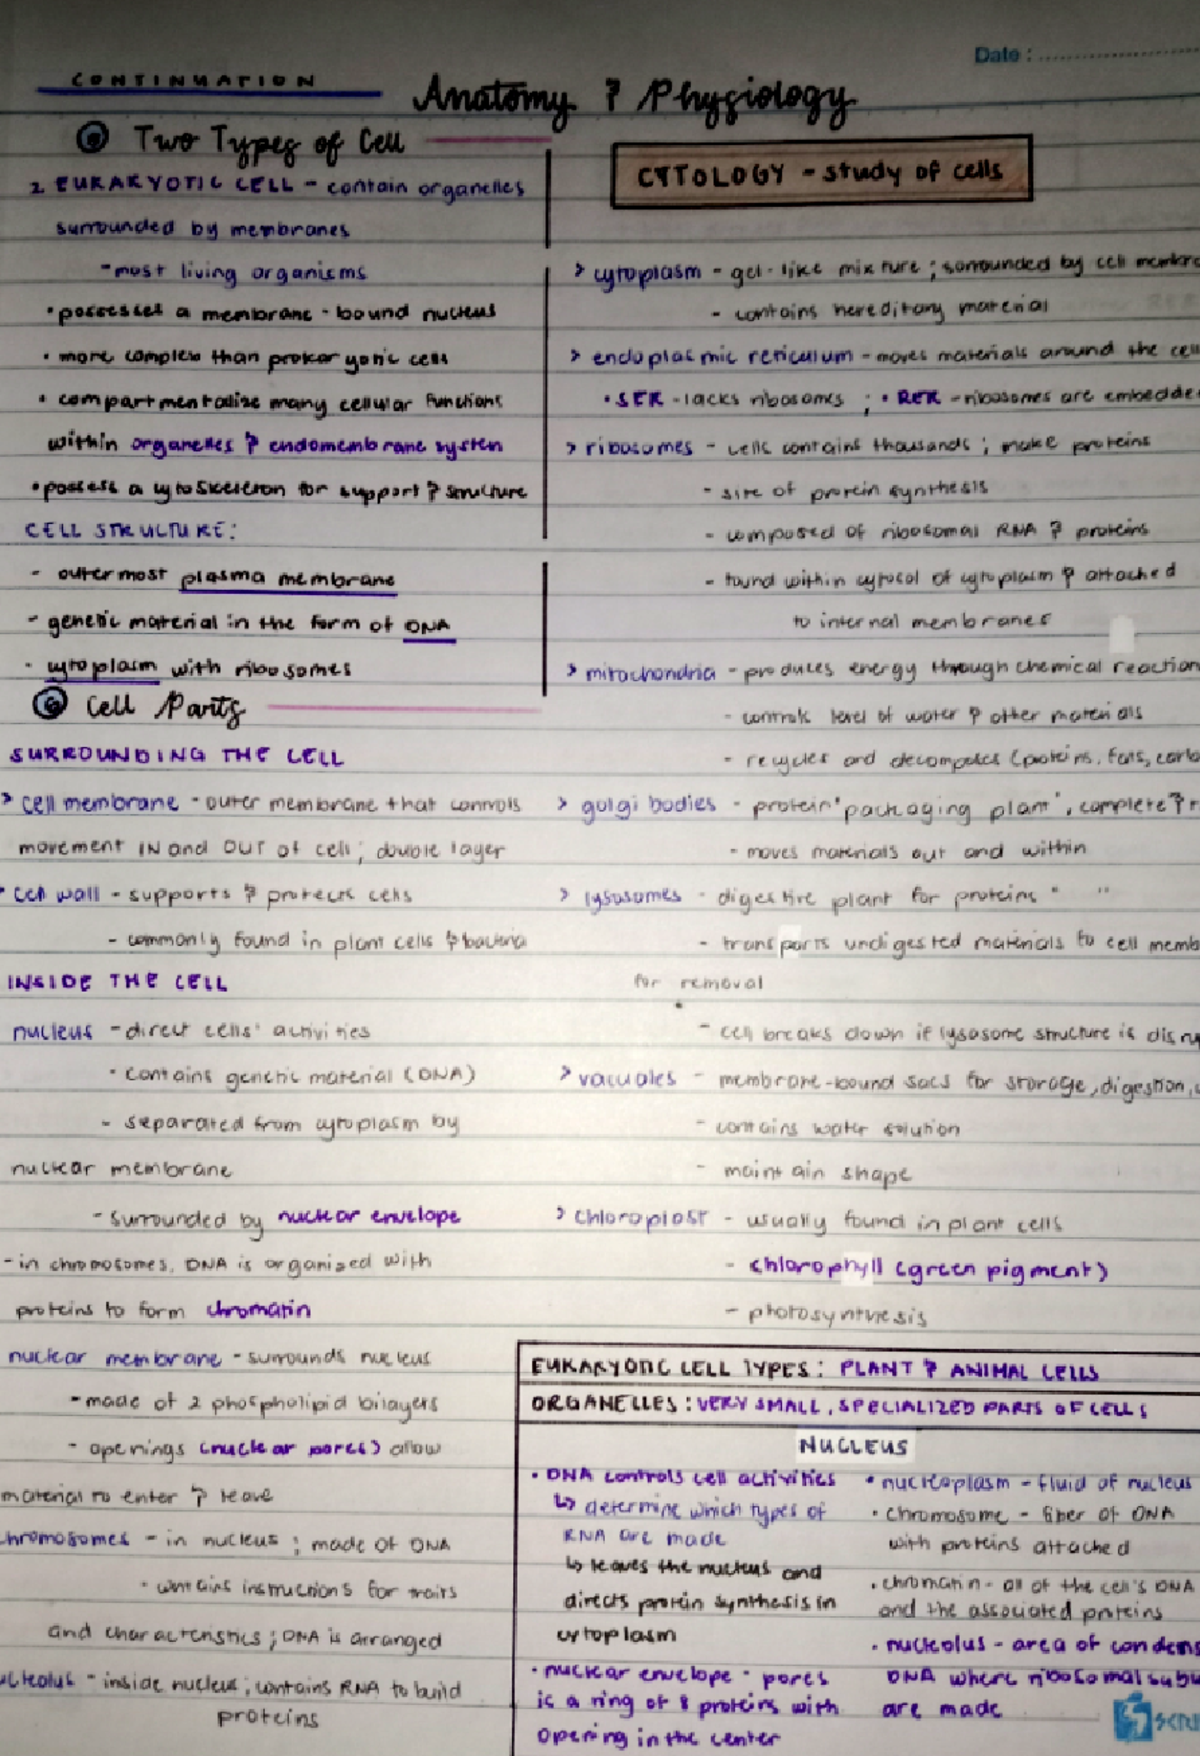 Date :
CONTINUATION
Anatomy & Physiology
Two Types of Cell
2. EUKARYOTIC CELL - contain organelles
surrounded by membranes
- most living organisms
• possesses a membrane-bound nucleus
• more complex than prokaryotic cells
• compartmentalize many cellular functions
within organelles & endomembrane system
• possess a cytoskeleton for support & structure
CELL STRUCTURE:
- outermost plasma membrane
- genetic material in the form of DNA
- cytoplasm with ribosomes
Cell Parts
SURROUNDING THE CELL
> cell membrane - outer membrane that controls
movement IN and OUT of cell; double layer
cell wall - supports & protects cells
- commonly found in plant cells & bacteria
INSIDE THE CELL
nucleus - direct cells' activities
• contains genetic material (DNA)
- separated from cytoplasm by
nuclear membrane
- surrounded by nuclear envelope
- in chromosomes, DNA is organized with
proteins to form chromatin
nuclear membrane - surrounds nucleus
- made of 2 phospholipid bilayers
- openings (nuclear pores) allow
material to enter & leave
hromosomes - in nucleus; made of DNA
• contains instructions for traits
and characteristics; DNA is arranged
ucleolus - inside nucleus; contains RNA to build
proteins
CYTOLOGY - study of cells
> cytoplasm - gel-like mixture; sorrounded by cell membra
- contains hereditary material
> endoplasmic reticulum - moves materials around the cell
• SER - lacks ribosomes ; • RER - ribosomes are embedde
> ribosomes - cells contains thousands; make proteins
- site of protein synthesis
- composed of ribosomal RNA & proteins
- found within cytosol of cytoplasm & attached
to internal membranes
> mitochondria - produces energy through chemical reaction
- controls level of water & other materials
- recycles and decomposes (proteins, fats, carb
> golgi bodies - protein "packaging plant", complete & r
- moves materials out and within
> lysosomes - digestive plant for proteins " "
- transports undigested materials to cell memb
for removal
- cell breaks down if lysosome structure is disru
> vacuoles - membrane-bound sacs for storage, digestion,
- contains water solution
- maintain shape
> chloroplast - usually found in plant cells
- chlorophyll (green pigment)
- photosynthesis
EUKARYOTIC CELL TYPES: PLANT & ANIMAL CELLS
ORGANELLES: VERY SMALL, SPECIALIZED PARTS OF CELLS
NUCLEUS
• DNA controls cell activities
↳ determine which types of
RNA are made
↳ leaves the nucleus and
directs protein synthesis in
cytoplasm
• nuclear envelope - pores
is a ring of 8 proteins with
opening in the center
• nucleoplasm - fluid of nucleus
• chromosome - fiber of DNA
with proteins attached
• chromatin - all of the cell's DNA
and the associated proteins
• nucleolus - area of condens
DNA where ribosomal subu
are made